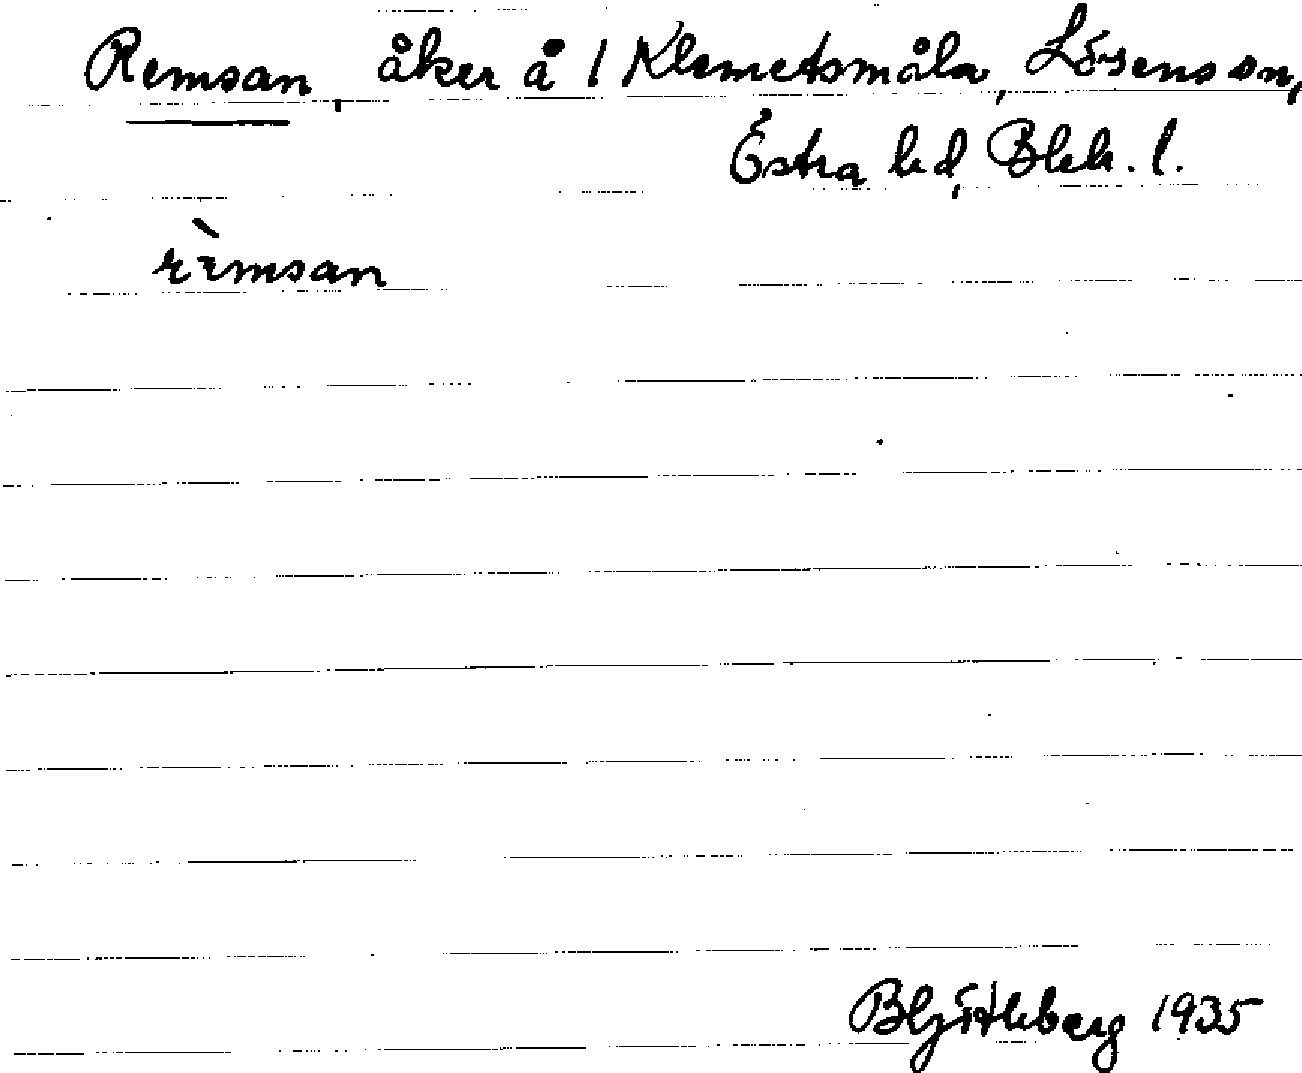 Remsan, åker å 1 Klemetsmåla, Lösens sn,
Östra hd, Blek. l.
rèmsan
1935